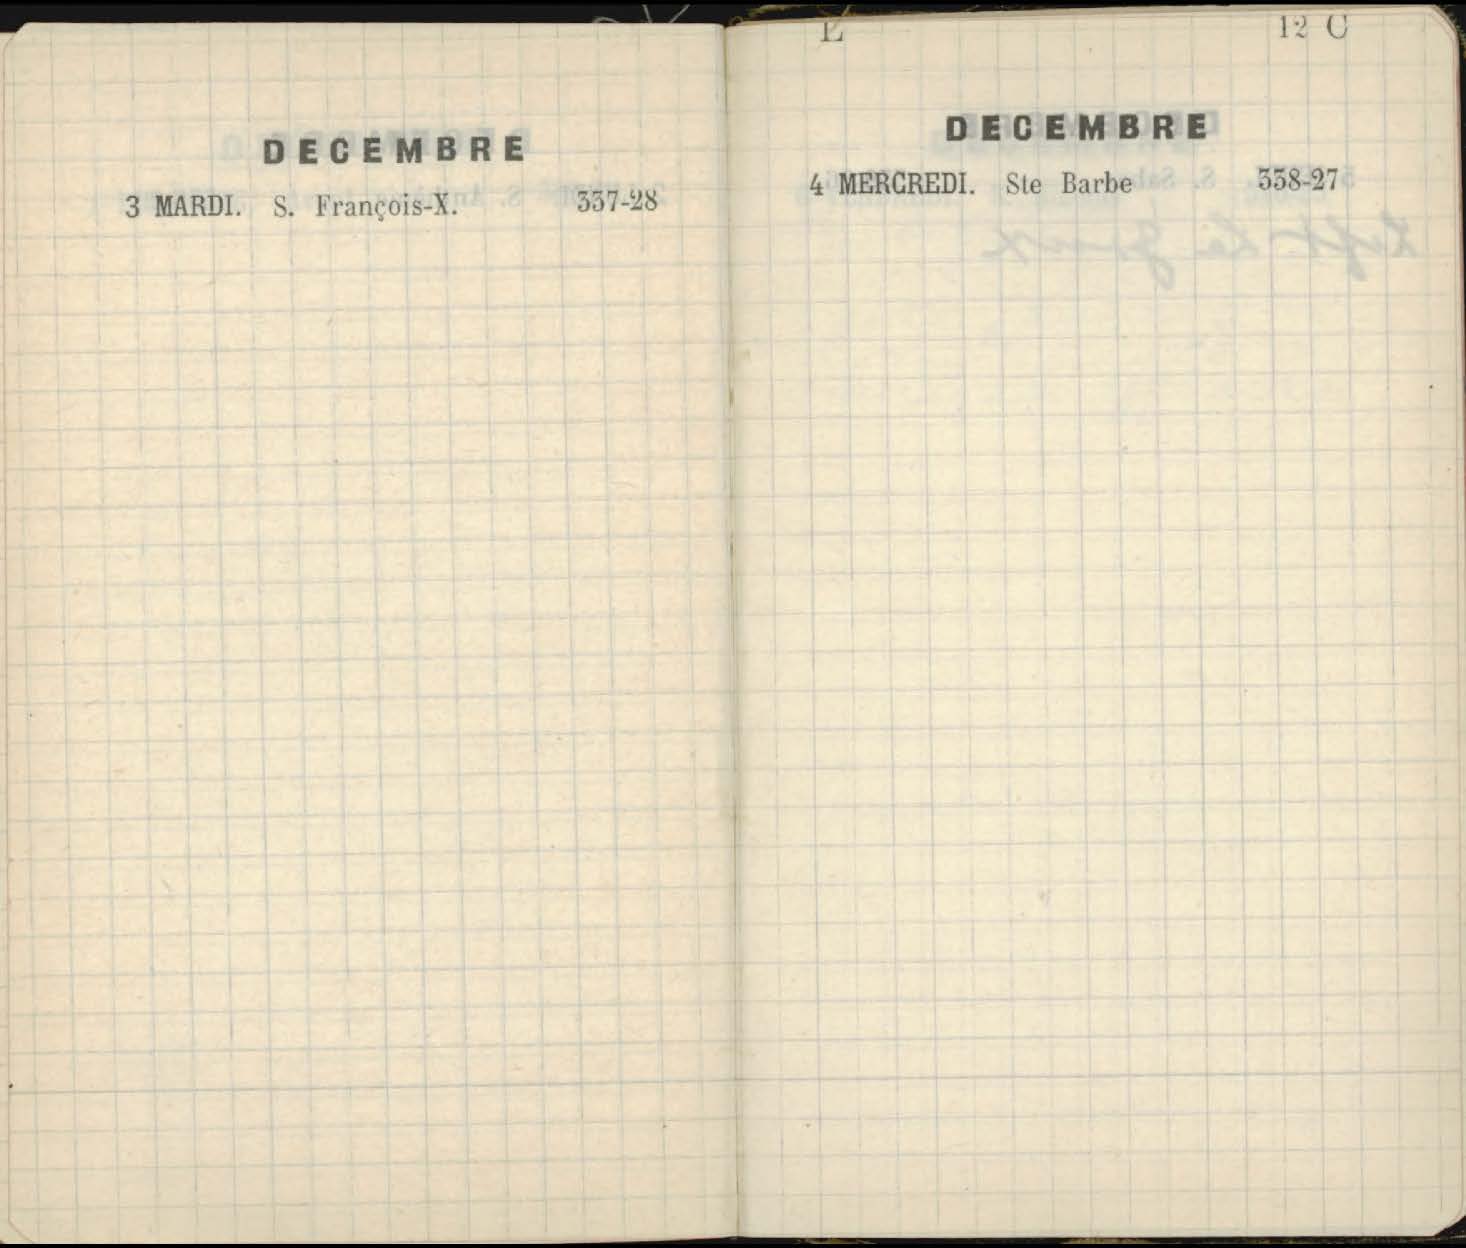 DECEMBRE
3 MARDI. S. François-X. 337-28
12 C
DECEMBRE
4 MERCREDI. Ste Barbe 338-27